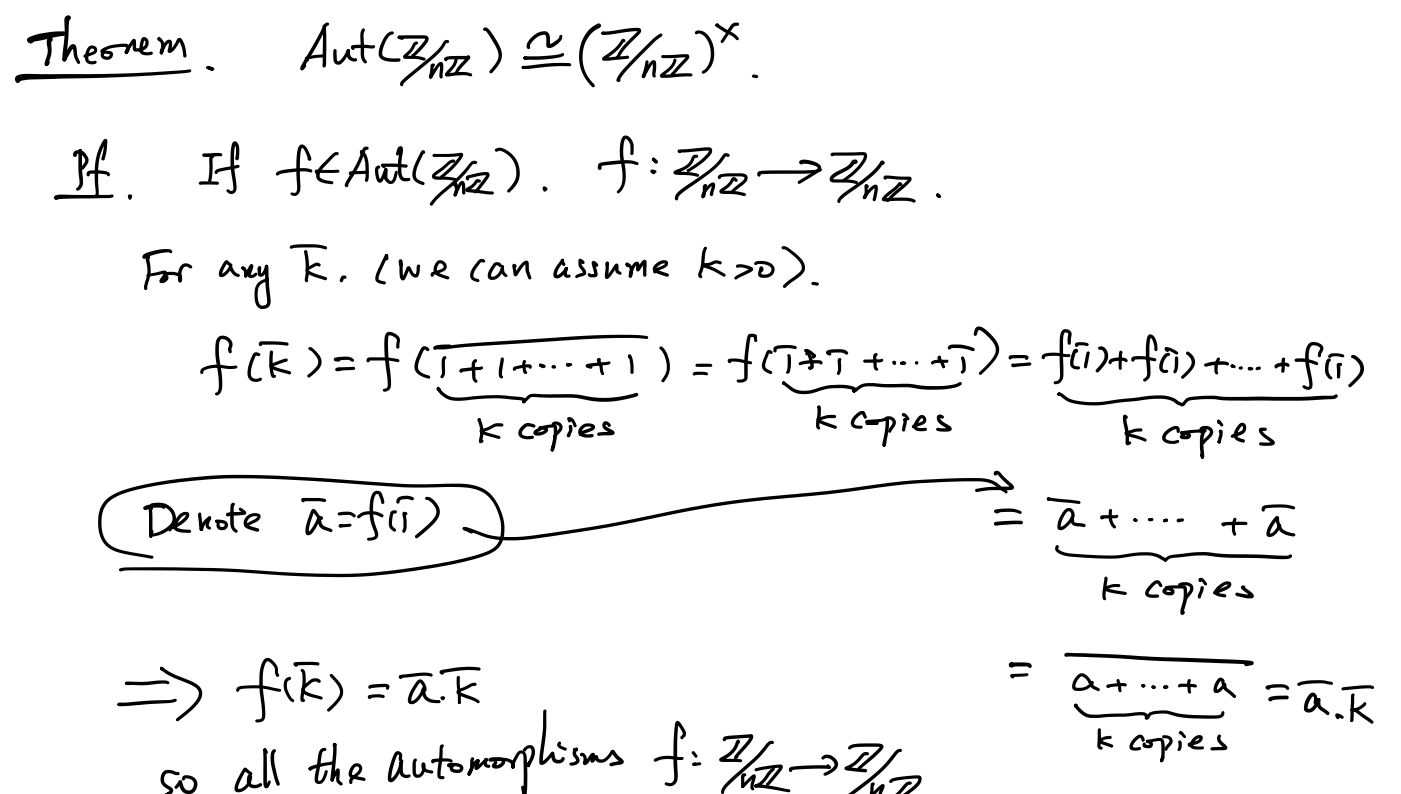 Theorem. Aut(ℤ/nℤ) ≅ (ℤ/nℤ)^×.
Pf. If f∈Aut(ℤ/nℤ). f: ℤ/nℤ → ℤ/nℤ.
For any k̅. (we can assume k>0).
f(k̅) = f(\overline{1+1+····+1}) = f(1̅+1̅+····+1̅) = f(1̅)+f(1̅)+····+f(1̅)
k copies k copies k copies
Denote a̅=f(1̅) → = a̅+···· +a̅
k copies
⟹ f(k̅) = a̅.k̅ = \overline{a+···+a} = a̅.k̅
k copies
so all the automorphisms f: ℤ/nℤ → ℤ/nℤ